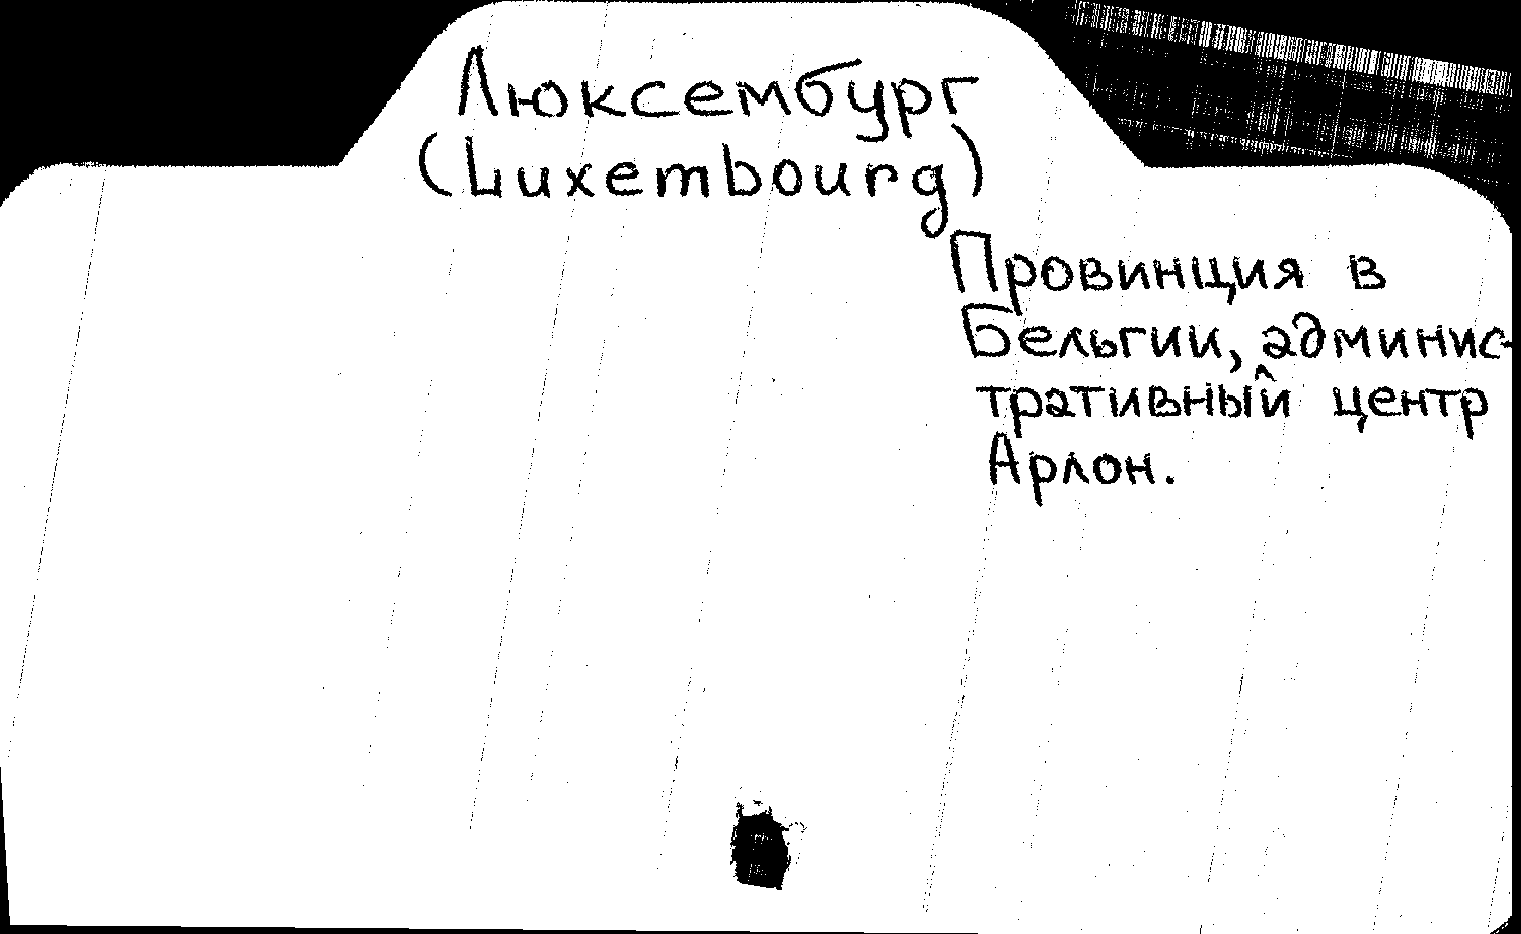 Люксембург
(Luxembourg)
Провинция в
Бельгии, админис-
тративный центр
Арлон.